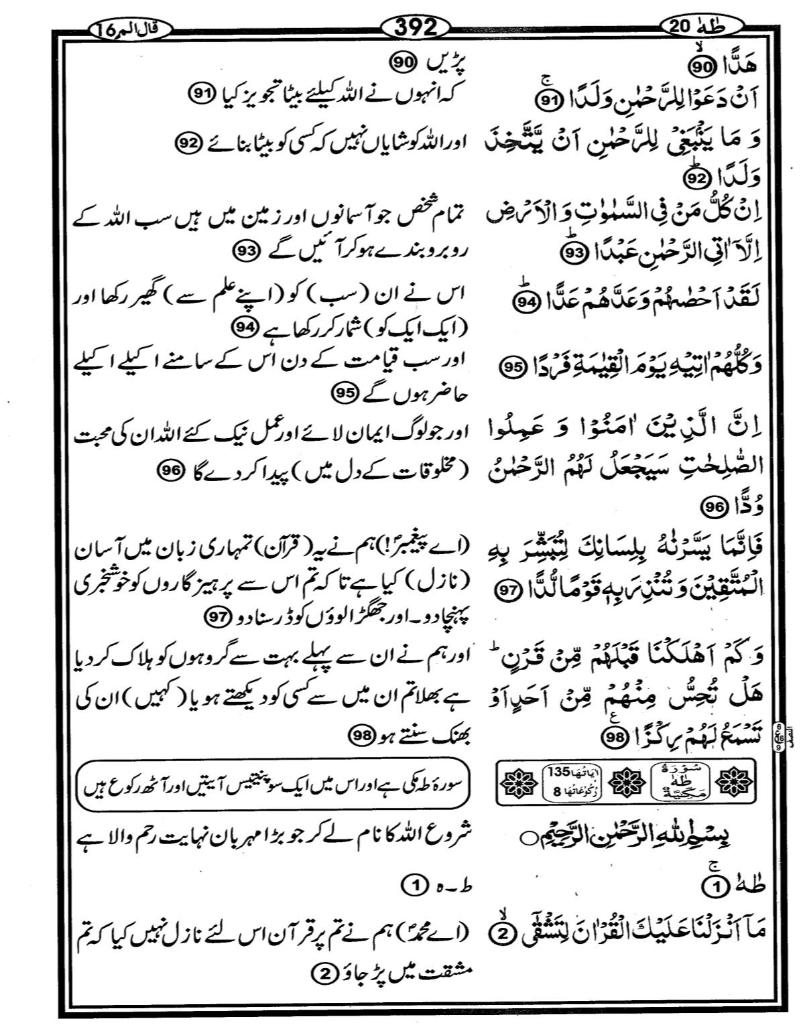 طٰهٰ 20
392
قال الم 16
هَدًّا 90
پڑیں 90
اَنْ دَعَوْا لِلرَّحْمٰنِ وَلَدًا ۚ 91
کہ انہوں نے اللہ کیلئے بیٹا تجویز کیا 91
وَ مَا يَنْۢبَغِيْ لِلرَّحْمٰنِ اَنْ يَّتَّخِذَ
وَلَدًا ؕ 92
اور اللہ کو شایاں نہیں کہ کسی کو بیٹا بنائے 92
اِنْ كُلُّ مَنْ فِي السَّمٰوٰتِ وَ الْاَرْضِ
اِلَّاۤ اٰتِي الرَّحْمٰنِ عَبْدًا ؕ 93
تمام شخص جو آسمانوں اور زمین میں ہیں سب اللہ کے
روبرو بندے ہو کر آئیں گے 93
لَقَدْ اَحْصٰىهُمْ وَعَدَّهُمْ عَدًّا ؕ 94
اس نے ان (سب) کو (اپنے علم سے) گھیر رکھا اور
(ایک ایک کو) شمار کر رکھا ہے 94
وَكُلُّهُمْ اٰتِيْهِ يَوْمَ الْقِيٰمَةِ فَرْدًا 95
اور سب قیامت کے دن اس کے سامنے اکیلے اکیلے
حاضر ہوں گے 95
اِنَّ الَّذِيْنَ اٰمَنُوْا وَ عَمِلُوا
الصّٰلِحٰتِ سَيَجْعَلُ لَهُمُ الرَّحْمٰنُ
وُدًّا 96
اور جو لوگ ایمان لائے اور عمل نیک کئے اللہ ان کی محبت
(مخلوقات کے دل میں) پیدا کر دے گا 96
فَاِنَّمَا يَسَّرْنٰهُ بِلِسَانِكَ لِتُبَشِّرَ بِهِ
الْمُتَّقِيْنَ وَ تُنْذِرَ بِهٖ قَوْمًا لُّدًّا 97
(اے پیغمبرؐ!) ہم نے یہ (قرآن) تمہاری زبان میں آسان
(نازل) کیا ہے تاکہ تم اس سے پرہیزگاروں کو خوشخبری
پہنچا دو۔ اور جھگڑالوؤں کو ڈر سنا دو 97
وَ كَمْ اَهْلَكْنَا قَبْلَهُمْ مِّنْ قَرْنٍ ؕ
هَلْ تُحِسُّ مِنْهُمْ مِّنْ اَحَدٍ اَوْ
تَسْمَعُ لَهُمْ رِكْزًا ع 98
اور ہم نے ان سے پہلے بہت سے گروہوں کو ہلاک کر دیا
ہے بھلا تم ان میں سے کسی کو دیکھتے ہو یا (کہیں) ان کی
بھنک سنتے ہو 98
سُوْرَةُ طٰهٰ مَكِّيَّةٌ
اٰيَاتُهَا 135
رُكُوْعَاتُهَا 8
سورۂ طہٰ مکی ہے اور اس میں ایک سو پینتیس آیتیں اور آٹھ رکوع ہیں
بِسْمِ اللّٰهِ الرَّحْمٰنِ الرَّحِيْمِ
شروع اللہ کا نام لے کر جو بڑا مہربان نہایت رحم والا ہے
طٰهٰ ۚ 1
ط۔ہ 1
مَاۤ اَنْزَلْنَا عَلَيْكَ الْقُرْاٰنَ لِتَشْقٰۤى ۙ 2
(اے محمدؐ) ہم نے تم پر قرآن اس لئے نازل نہیں کیا کہ تم
مشقت میں پڑ جاؤ 2